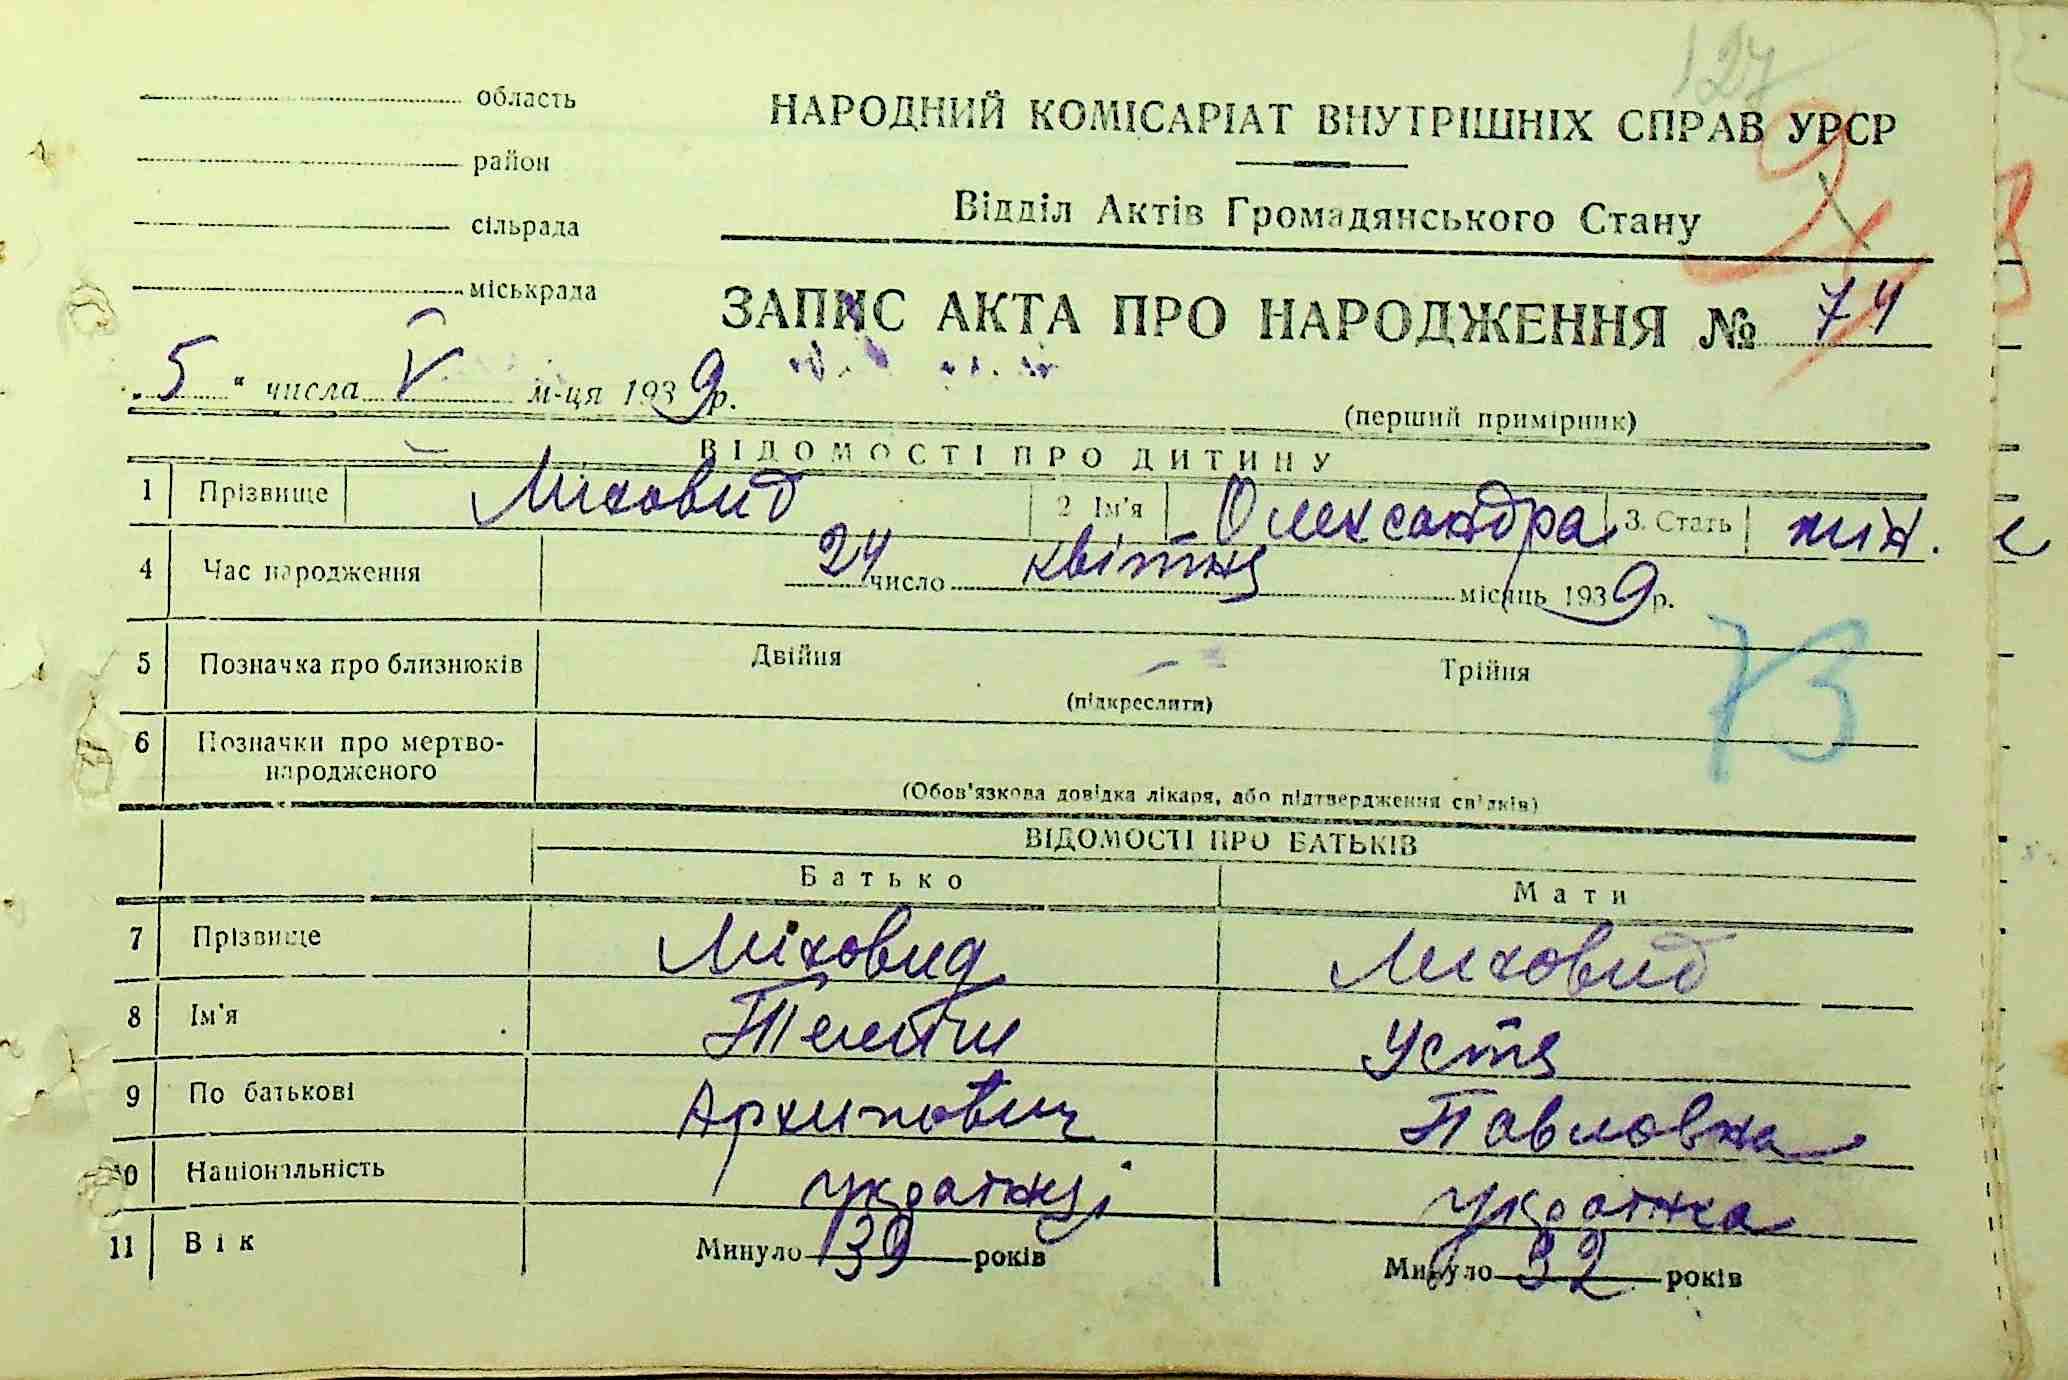 127
область
НАРОДНИЙ КОМІСАРІАТ ВНУТРІШНІХ СПРАВ УРСР
район
Відділ Актів Громадянського Стану
сільрада
міськрада
ЗАПИС АКТА ПРО НАРОДЖЕННЯ № 74
„5“ числа V м-ця 1939 р.
(перший примірник)
ВІДОМОСТІ ПРО ДИТИНУ
1 Прізвище Ліховид 2 Ім'я Олександра 3. Стать жін.
4 Час народження 24 число квітня місяць 1939 р.
5 Позначка про близнюків Двійня Трійня
(підкреслити)
73
6 Позначки про мертво-
народженого
(Обов'язкова довідка лікаря, або підтвердження свідків)
ВІДОМОСТІ ПРО БАТЬКІВ
Батько Мати
7 Прізвище Ліховид Лиховид
8 Ім'я Устя
9 По батькові Архипович Павловна
10 Національність українка
11 Вік Минуло 39 років Минуло 32 років